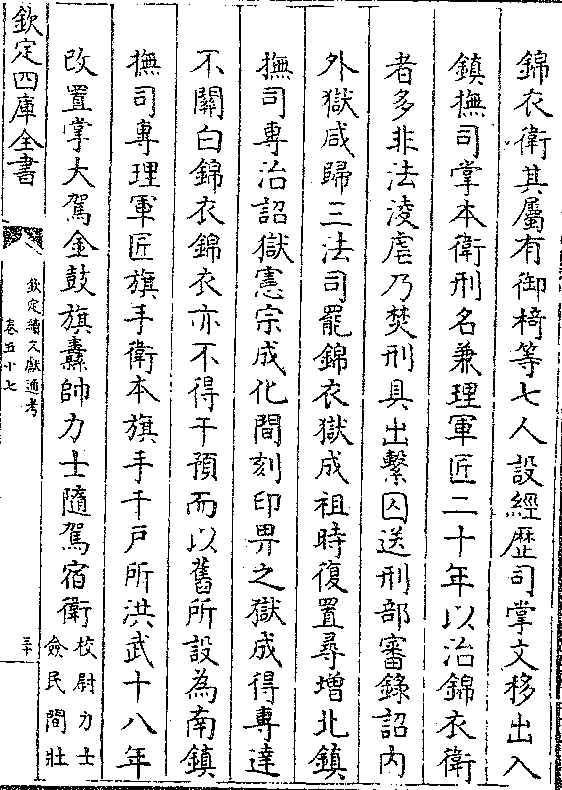 錦衣衛其屬有御椅等七人設經歴司掌文移出入
鎮撫司掌本衛刑名兼理軍匠二十年以治錦衣衛
者多非法淩虐乃焚刑具出繫囚送刑部審錄詔内
外獄咸歸三法司罷錦衣獄成祖時復置尋增北鎮
撫司專治詔獄憲宗成化間刻印畀之獄成得專達
不關白錦衣錦衣亦不得干預而以舊所設為南鎮
撫司專理軍匠旗手衛本旗手千戶所洪武十八年
改置掌大駕金鼓旗纛帥力士隨駕宿衛
校尉力士
僉民間壯
欽定四庫全書
欽定續文獻通考
卷五十七
三十